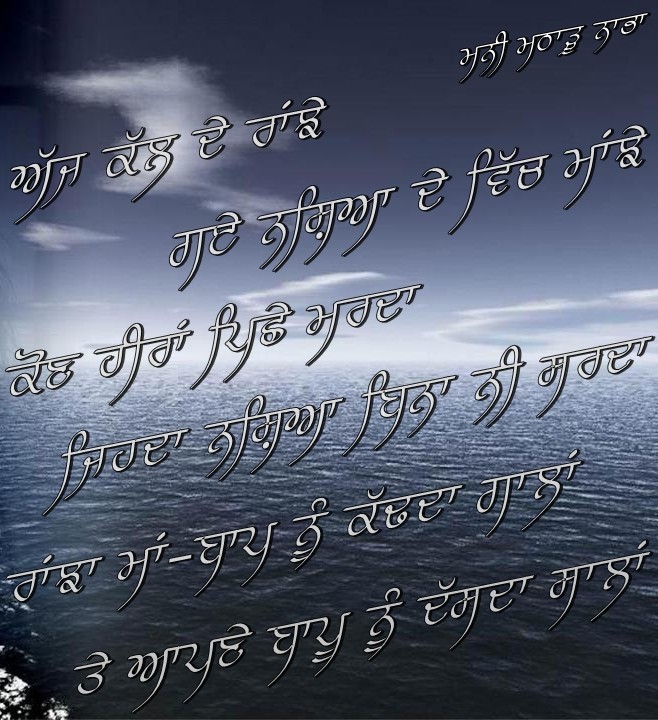 ਮਨੀ ਮਠਾੜੂ ਨਾਭਾ
ਅੱਜ ਕੱਲ ਦੇ ਰਾਂਝੇ
ਗਏ ਨਸ਼ਿਆ ਦੇ ਵਿੱਚ ਮਾਂਝੇ
ਕੌਣ ਹੀਰਾਂ ਪਿਛੇ ਮਰਦਾ
ਜਿਹਦਾ ਨਸ਼ਿਆ ਬਿਨਾ ਨੀ ਸਰਦਾ
ਰਾਂਝਾ ਮਾਂ-ਬਾਪ ਨੂੰ ਕੱਢਦਾ ਗਾਲਾਂ
ਤੇ ਆਪਣੇ ਬਾਪੂ ਨੂੰ ਦੱਸਦਾ ਸਾਲਾਂ